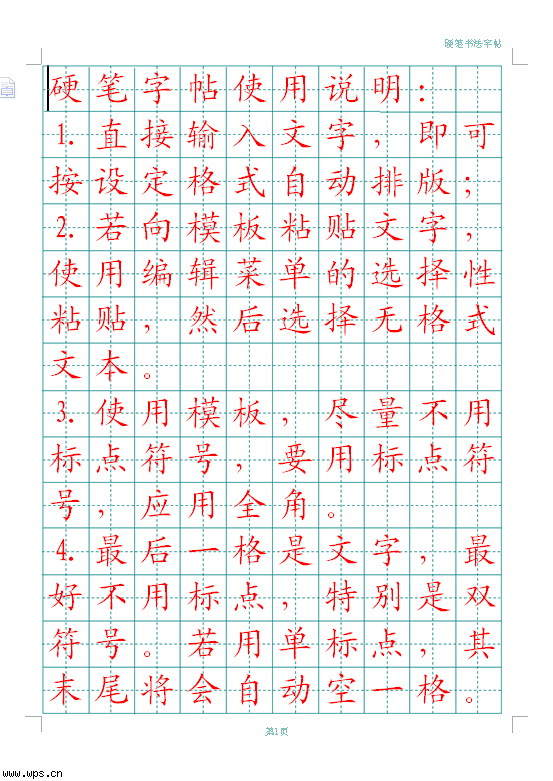 硬笔书法字帖
硬笔字帖使用说明：
1.直接输入文字，即可
按设定格式自动排版；
2.若向模板粘贴文字，
使用编辑菜单的选择性
粘贴，然后选择无格式
文本。
3.使用模板，尽量不用
标点符号，要用标点符
号，应用全角。
4.最后一格是文字，最
好不用标点，特别是双
符号。若用单标点，其
末尾将会自动空一格。
第1页
www.wps.cn